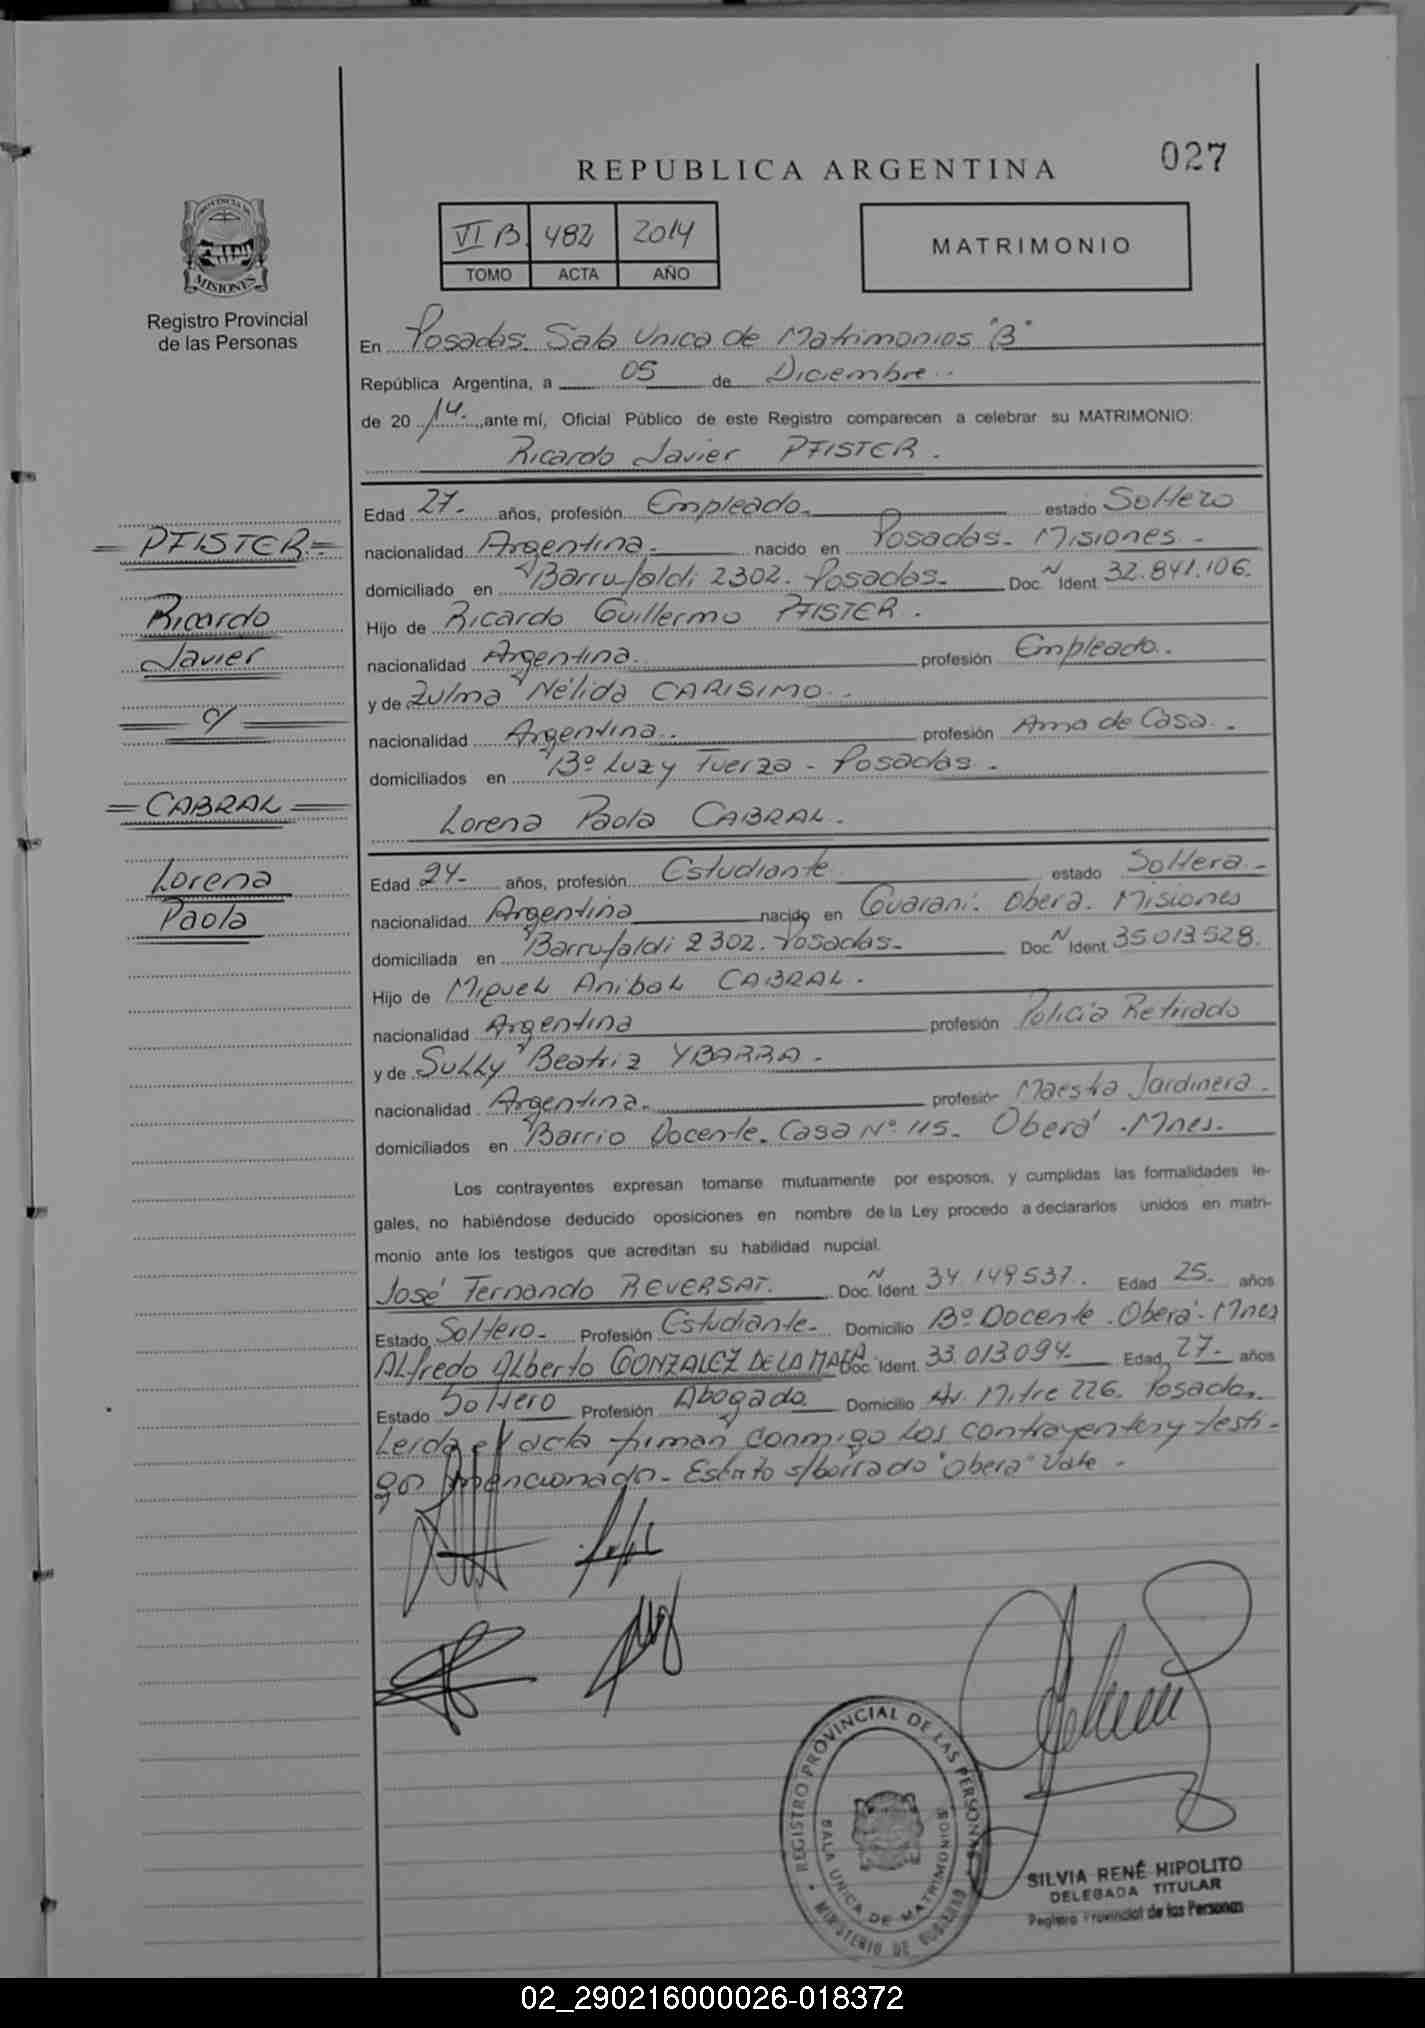 027
REPUBLICA ARGENTINA
VI B 482 2014
TOMO ACTA AÑO
MATRIMONIO
PROVINCIA DE
MISIONES
Registro Provincial
de las Personas
En Posadas. Sala Unica de Matrimonios "B"
República Argentina, a 05 de Diciembre
de 20 14. ante mí, Oficial Público de este Registro comparecen a celebrar su MATRIMONIO:
Ricardo Javier PFISTER.
Edad 27- años, profesión Empleado. estado Soltero
nacionalidad Argentina nacido en Posadas- Misiones-
domiciliado en Barrufaldi 2302. Posadas- Doc. N Ident. 32.841.106.
Hijo de Ricardo Guillermo PFISTER.
nacionalidad Argentina. profesión Empleado.
y de Zulma Nélida CARISIMO.
nacionalidad Argentina. profesión Ama de Casa.-
domiciliados en Bº Luz y Fuerza - Posadas-
Lorena Paola CABRAL.
Edad 24- años, profesión Estudiante estado Soltera-
nacionalidad Argentina nacido en Guaraní. Oberá. Misiones
domiciliada en Barrufaldi 2302. Posadas- Doc. N Ident. 35.013.528.
Hijo de Miguel Anibal CABRAL.
nacionalidad Argentina profesión Policía Retirado
y de Sully Beatriz YBARRA-
nacionalidad Argentina. profesión Maestra Jardinera-
domiciliados en Barrio Docente. Casa Nº 115- Oberá.-Mnes.
Los contrayentes expresan tomarse mutuamente por esposos, y cumplidas las formalidades le-
gales, no habiéndose deducido oposiciones en nombre de la Ley procedo a declararlos unidos en matri-
monio ante los testigos que acreditan su habilidad nupcial.
José Fernando REVERSAT. Doc. N Ident. 34.149.537. Edad 25. años
Estado Soltero- Profesión Estudiante- Domicilio Bº Docente. Oberá. Mnes
Alfredo Alberto GONZALEZ DE LA MATA Doc. Ident. 33.013.094. Edad 27- años
Estado Soltero Profesión Abogado. Domicilio Av. Mitre 226. Posadas.
Leída el acta firman conmigo los contrayentes y testi-
gos mencionado- Escrito s/borrado "Oberá" Vale-
= PFISTER =
Ricardo
Javier
c/
= CABRAL =
Lorena
Paola
REGISTRO PROVINCIAL DE LAS PERSONAS
SALA UNICA DE MATRIMONIOS
MINISTERIO DE GOBIERNO
SILVIA RENÉ HIPOLITO
DELEGADA TITULAR
Registro Provincial de las Personas
02_290216000026-018372